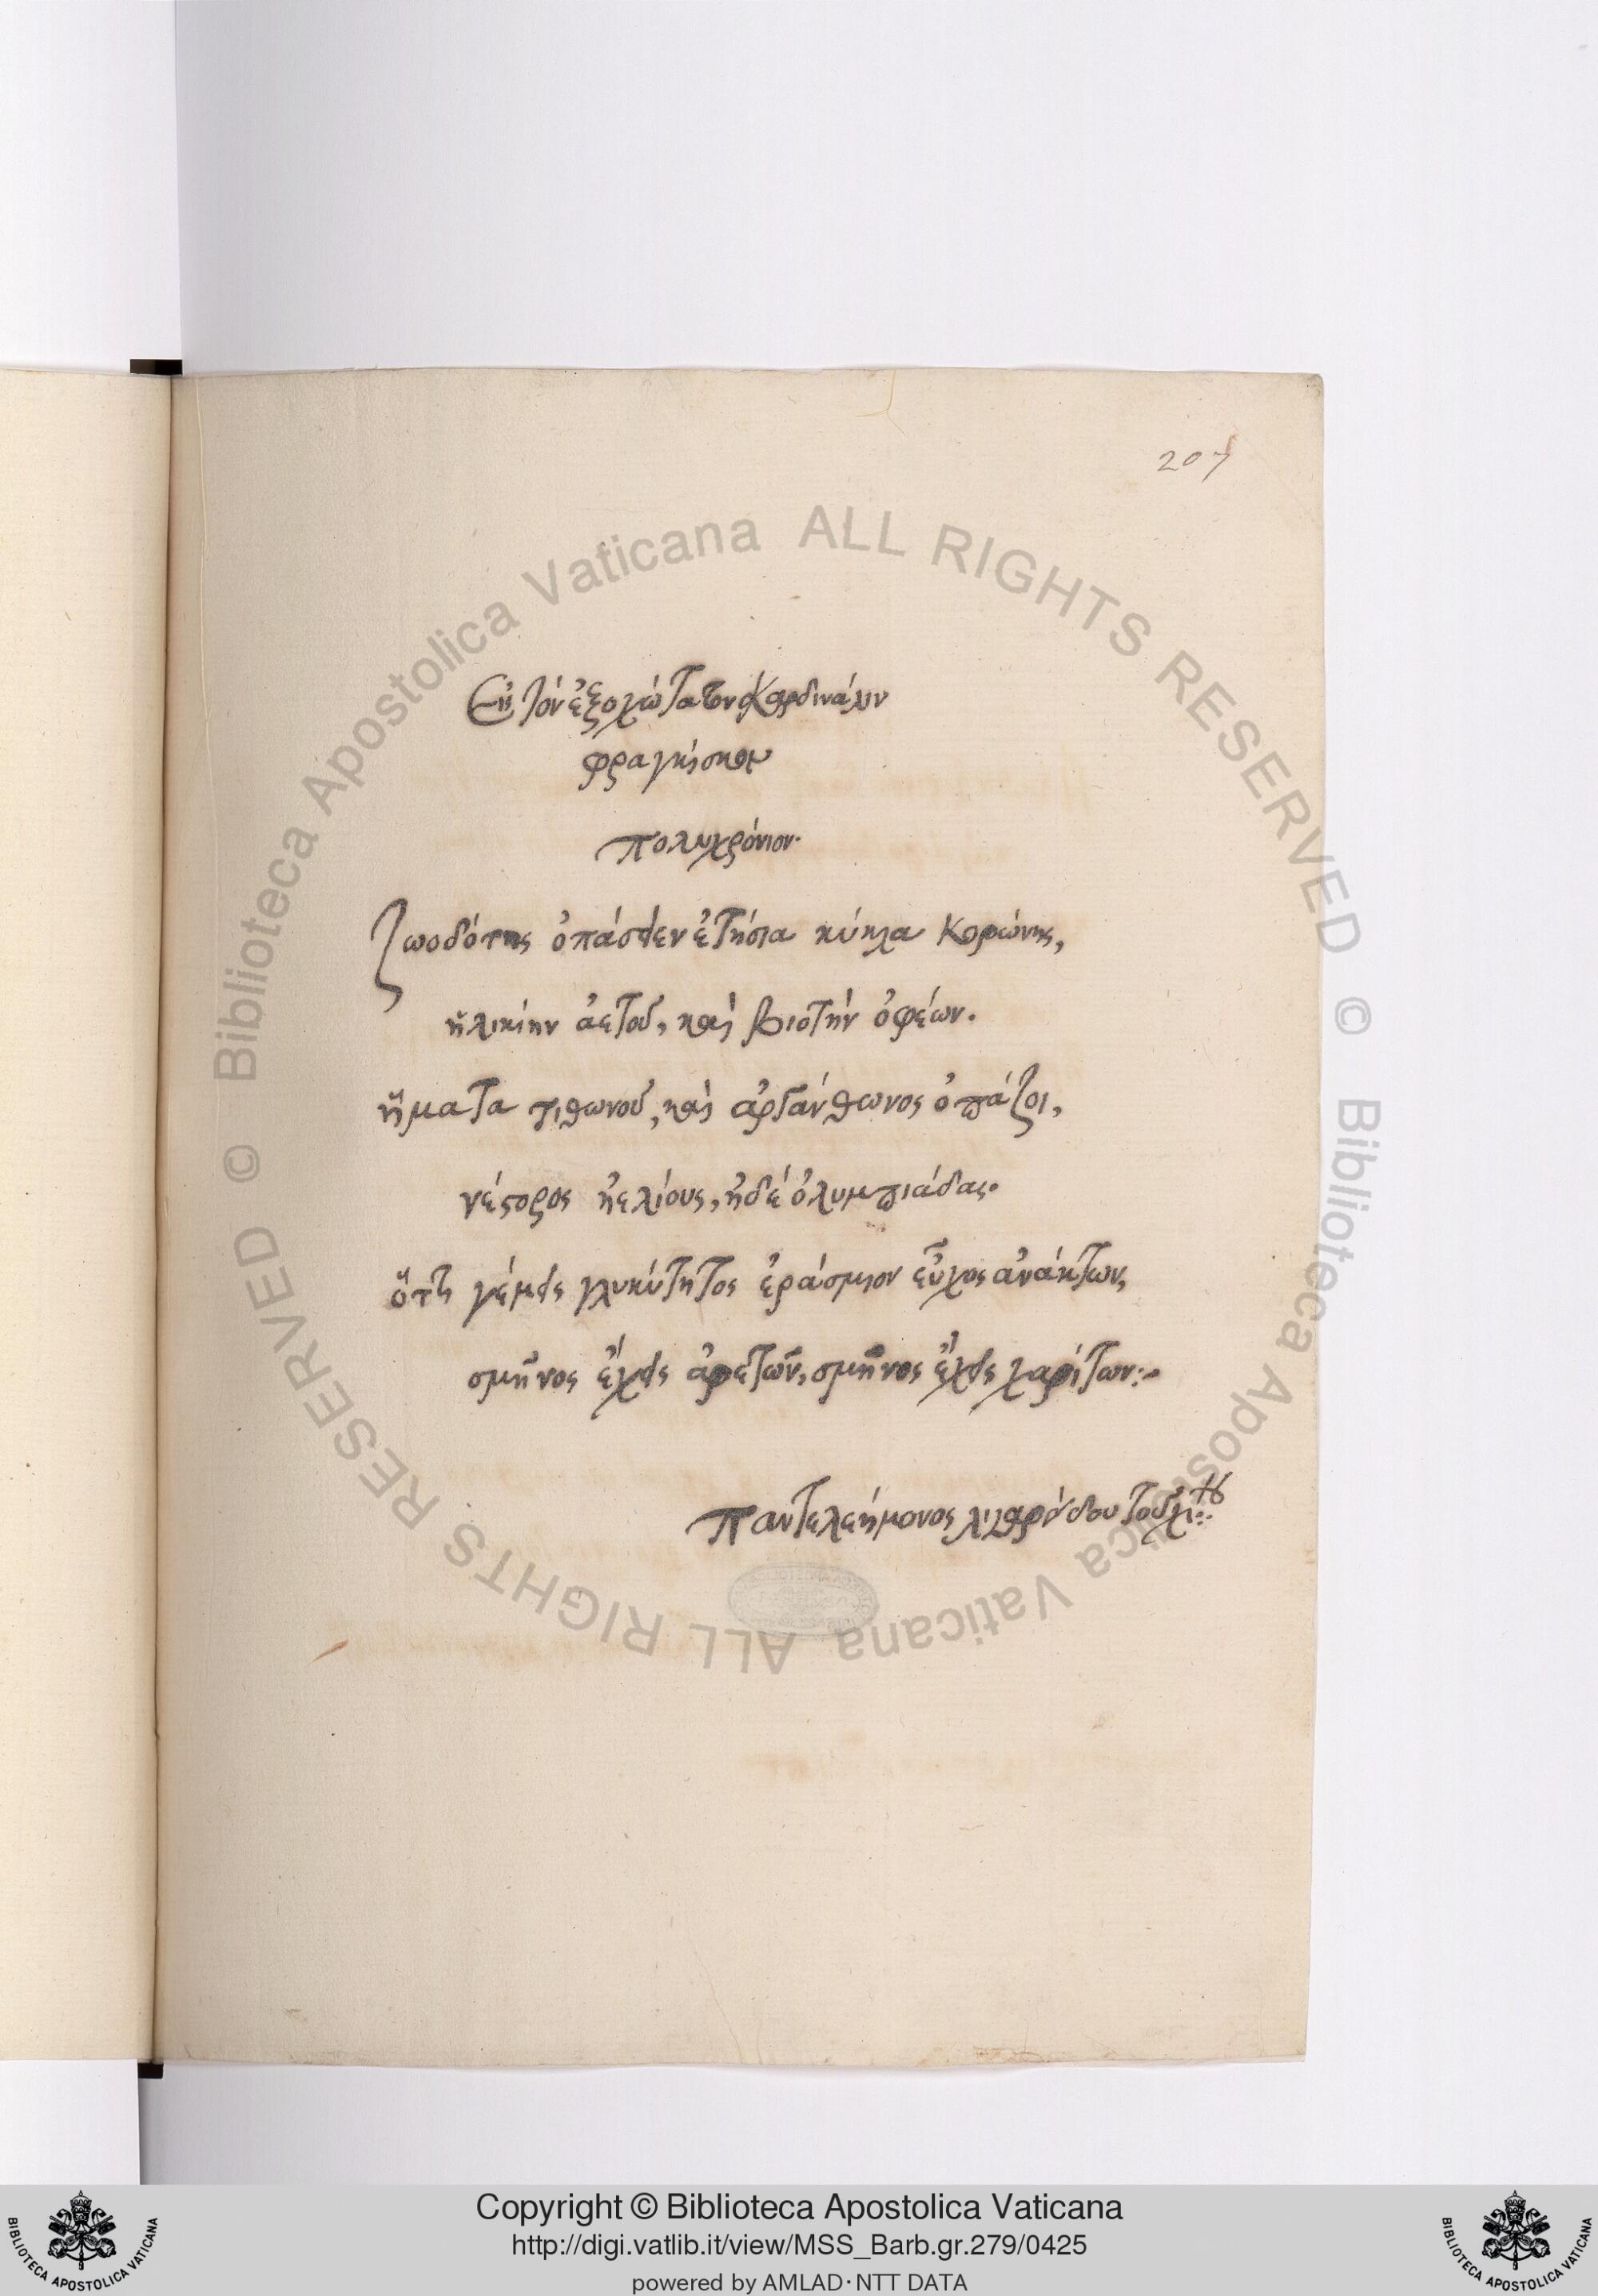 207
Εἰς τὸν ἐξοχώτατον Καρδινάλιν
φραγκίσκον
πολυχρόνιον.
Ζωοδότης ὀπάσειεν ἐτήσια κύκλα Κορώνης,
ἡλικίην ἀετοῦ, καὶ βιοτὴν ὀφέων.
ἤματα τιθωνοῦ, καὶ ἀργανθωνος ὀπάζοι,
νέστορος ἠελίους, ἠδέ ὀλυμπιάδας.
ὅττι γέμεις γλυκύτητος ἐράσμιον εὖχος ἀνάκτων,
σμῆνος ἔχεις ἀρετῶν, σμῆνος ἔχεις χαρίτων:~
Παντελεήμονος λιγαρίδου τοῦ χίου
Copyright © Biblioteca Apostolica Vaticana
http://digi.vatlib.it/view/MSS_Barb.gr.279/0425
powered by AMLAD·NTT DATA
BIBLIOTECA APOSTOLICA VATICANA
BIBLIOTECA APOSTOLICA VATICANA
© Biblioteca Apostolica Vaticana ALL RIGHTS RESERVED
© Biblioteca Apostolica Vaticana ALL RIGHTS RESERVED